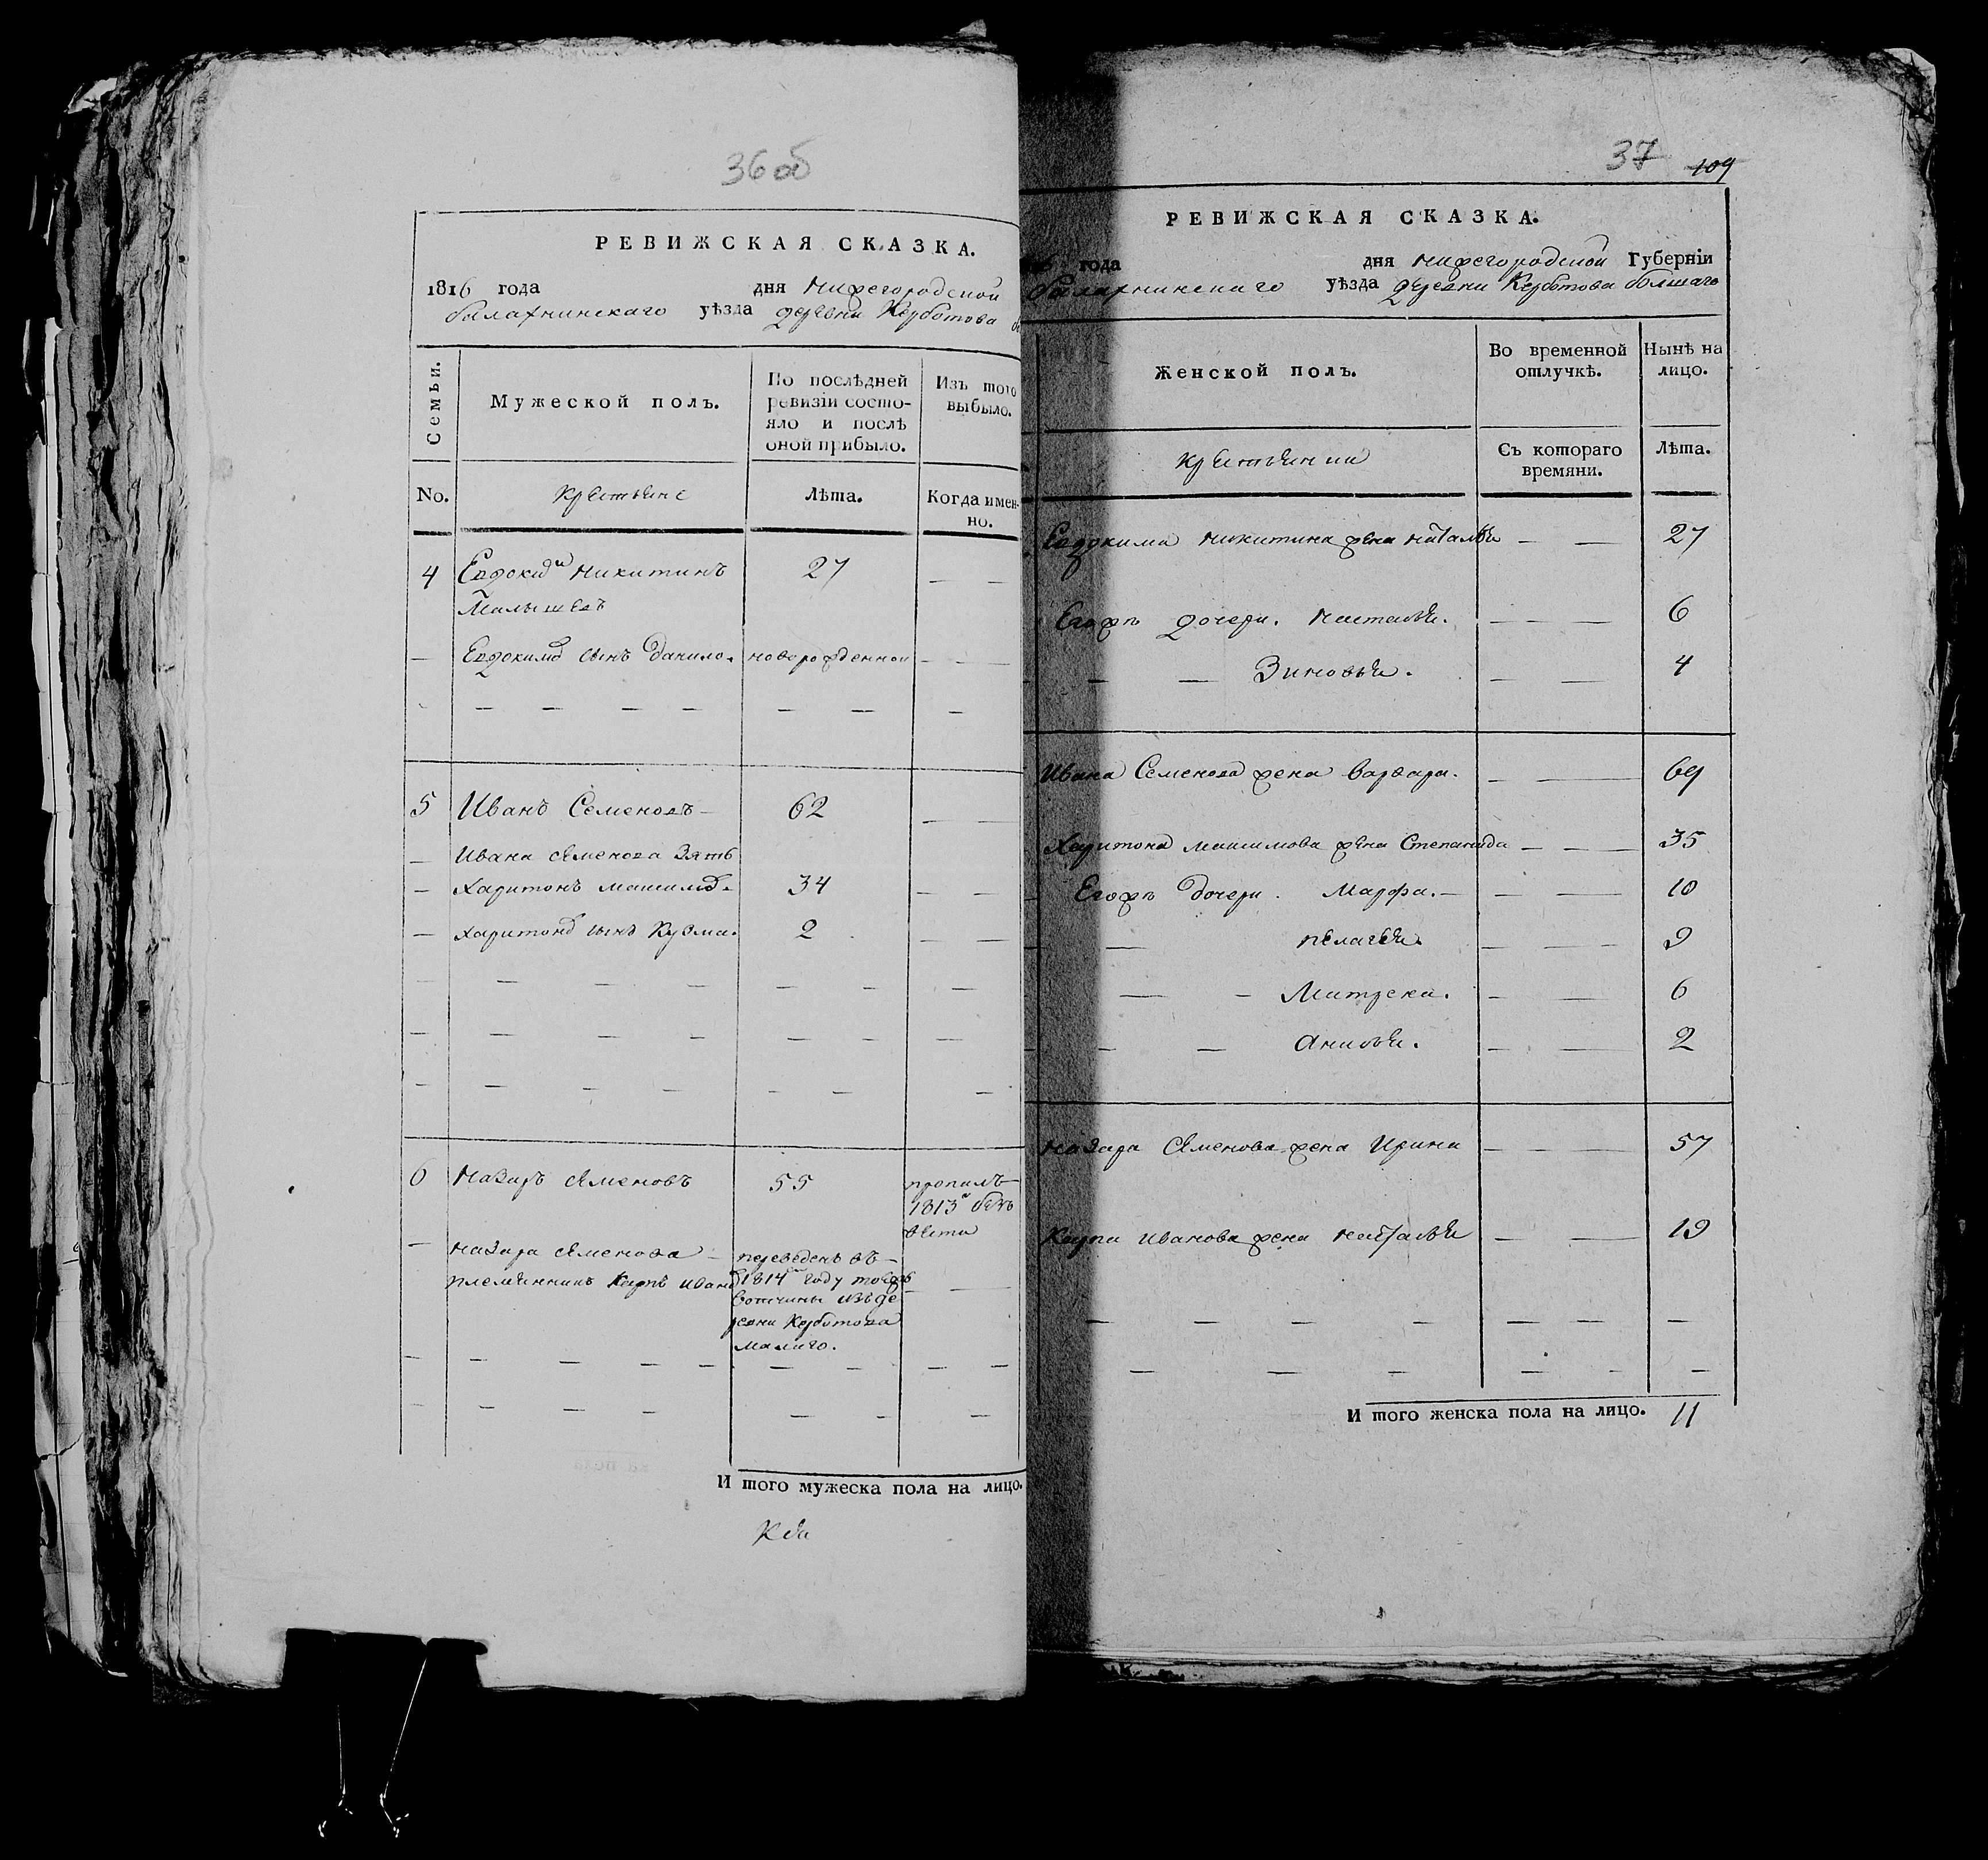 36об
РЕВИЖСКАЯ СКАЗКА.
1816 года дня Нижегородской
балахнинскаго уѣзда деревни Керботова
Семьи.
Мужеской полъ.
По послѣдней ревизіи состо-
яло и послѣ
оной прибыло.
Изъ того
выбыло.
No.
крестьяне
Лѣта.
Когда имен-
но.
4 Евдокимъ Никитинъ 27
Малышевъ
Евдокима сынъ Данило. новорожденной
5 Иванъ Семеновъ 62
Ивана Семенова зять
Харитонъ Максимовъ 34
Харитона сынъ Кузма. 2
6 Назаръ Семеновъ 55 пропалъ
1813 безъ
вести
Назара Семенова переведенъ въ
племянникъ Карпъ Ивановъ 1814 году тоежъ
вотчины изъ де
ревни Керботова
малаго.
И того мужеска пола на лицо.
37 109
РЕВИЖСКАЯ СКАЗКА.
года дня Нижегородской Губерніи
балахнинскаго уѣзда деревни Керботова болшаго
Женской полъ.
Во временной
отлучкѣ.
Нынѣ на
лицо.
крестьянки
Съ котораго
времяни.
Лѣта.
Евдокима Никитина жена Наталья 27
Егожъ дочери. Наталья. 6
Зиновья. 4
Ивана Семенова жена Варвара. 69
Харитона Максимова жена Степанида 35
Егожъ дочери. Марфа. 10
Пелагея. 9
Матрена. 6
Анисья. 2
Назара Семенова жена Ирина 57
Карпа Иванова жена Наталья 19
И того женска пола на лицо. 11